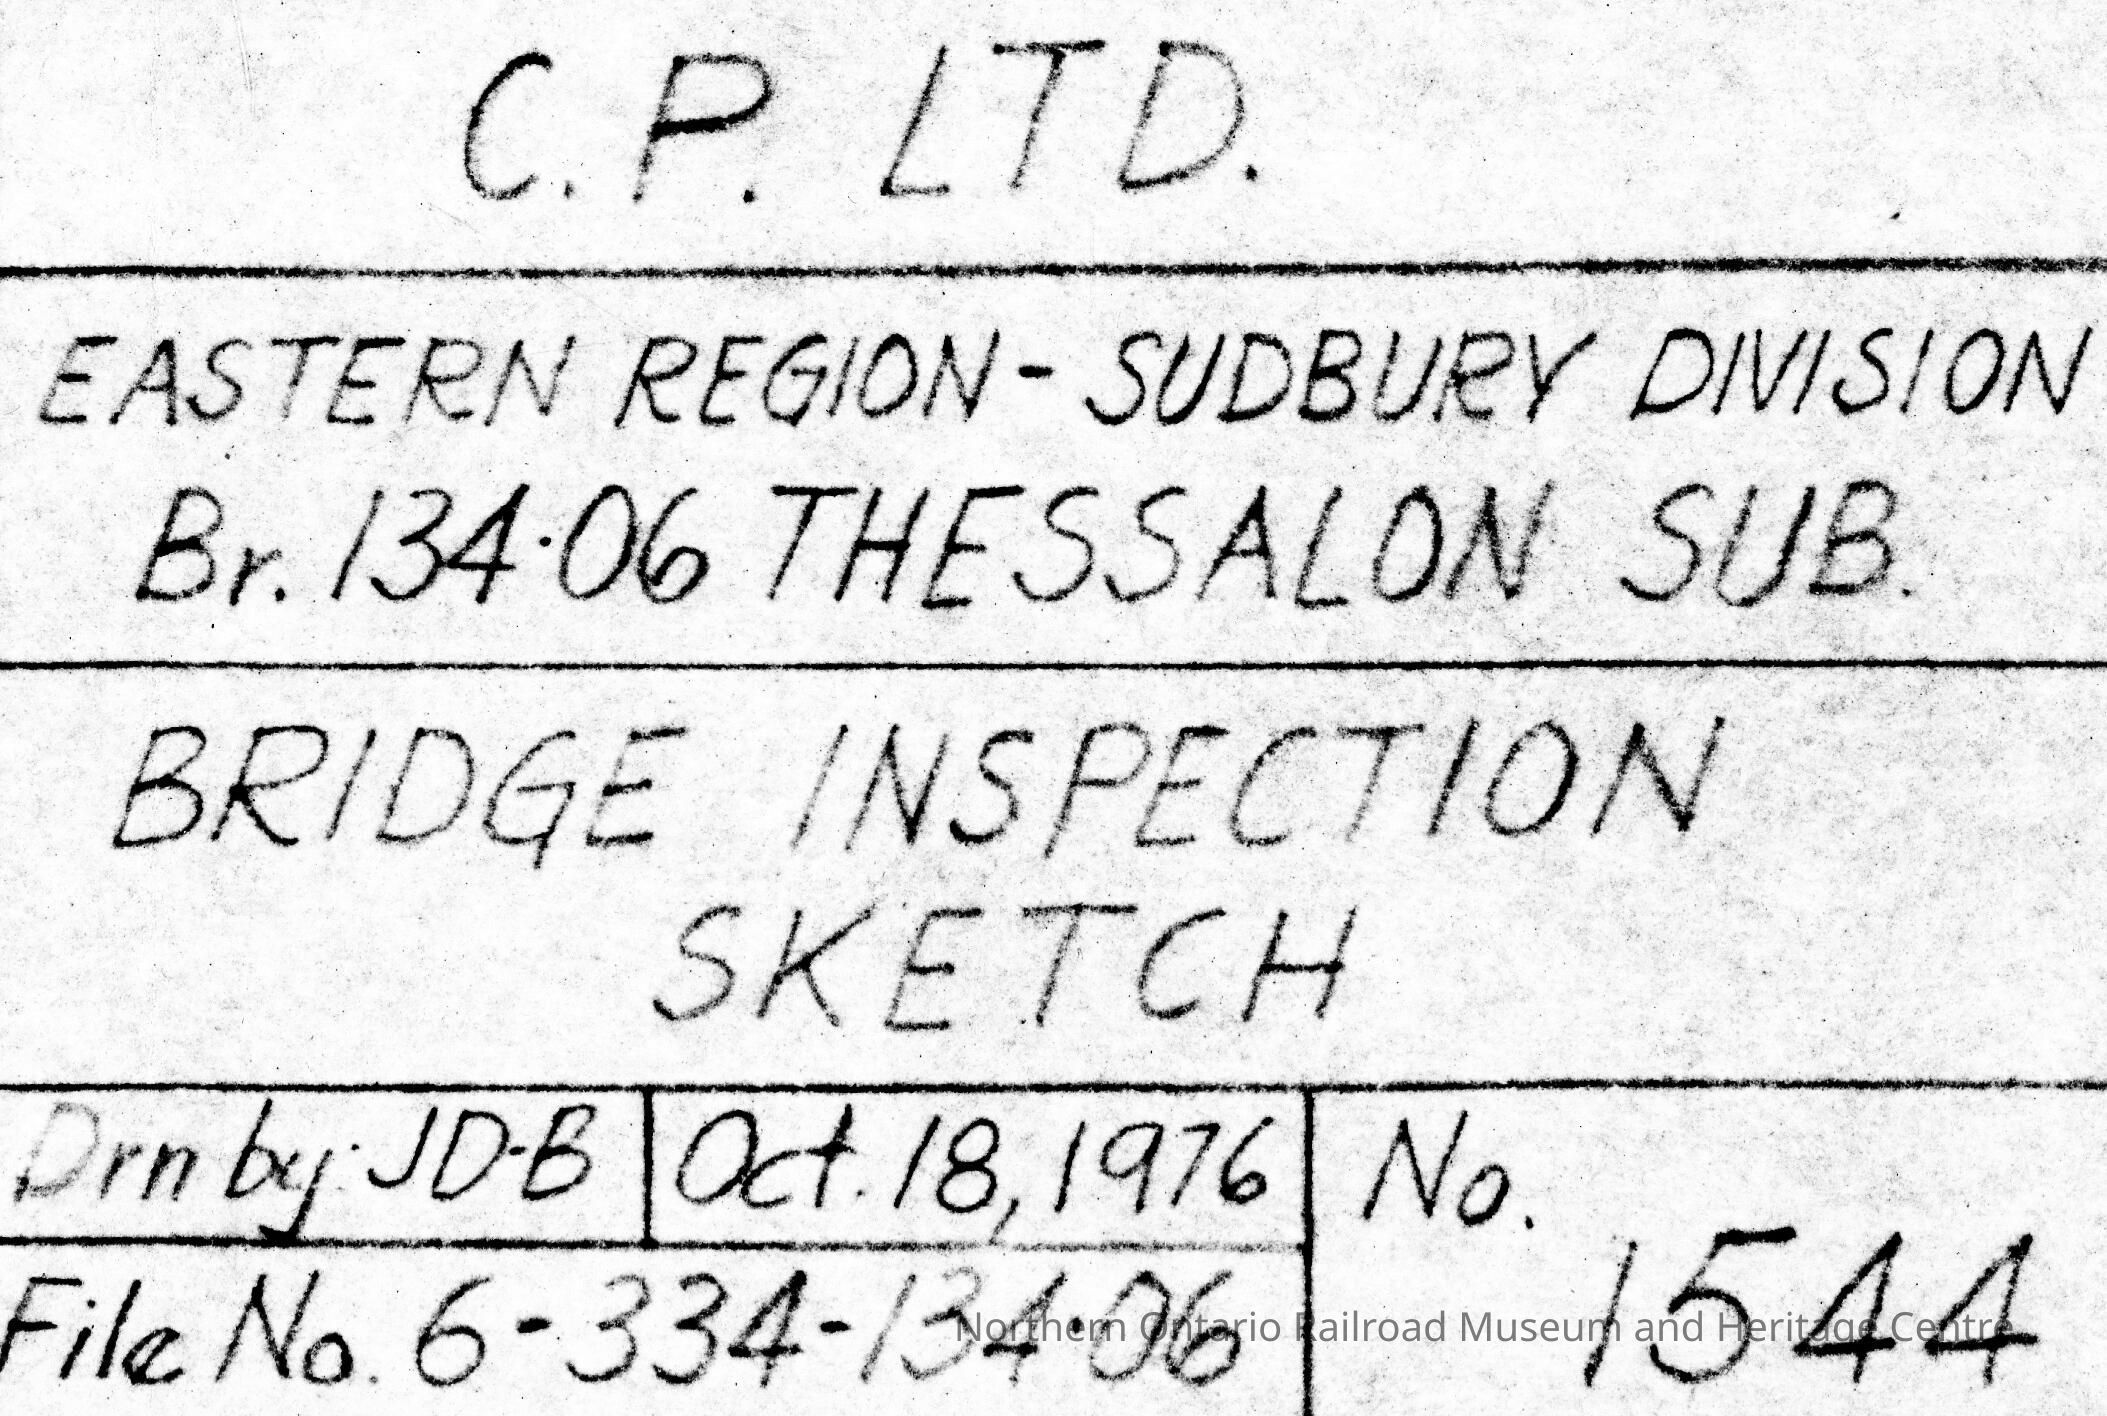 C. P. LTD.
EASTERN REGION - SUDBURY DIVISION
Br. 134·06 THESSALON SUB.
BRIDGE INSPECTION
SKETCH
Drn by: JD·B
Oct. 18, 1976
No.
1544
File No. 6-334-134·06
Northern Ontario Railroad Museum and Heritage Centre